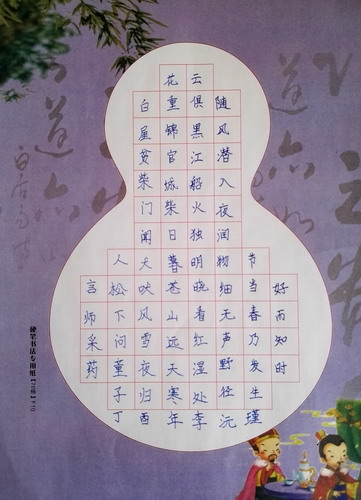 好雨知时
节当春乃发生
随风潜入夜润物细无声野径
云俱黑江船火独明晓看红湿处
花重锦官城柴日暮苍山远天寒
白屋贫柴门闻犬吠风雪夜归
人松下问童子
言师采药
丁酉年李沅瑾
硬笔书法专用纸